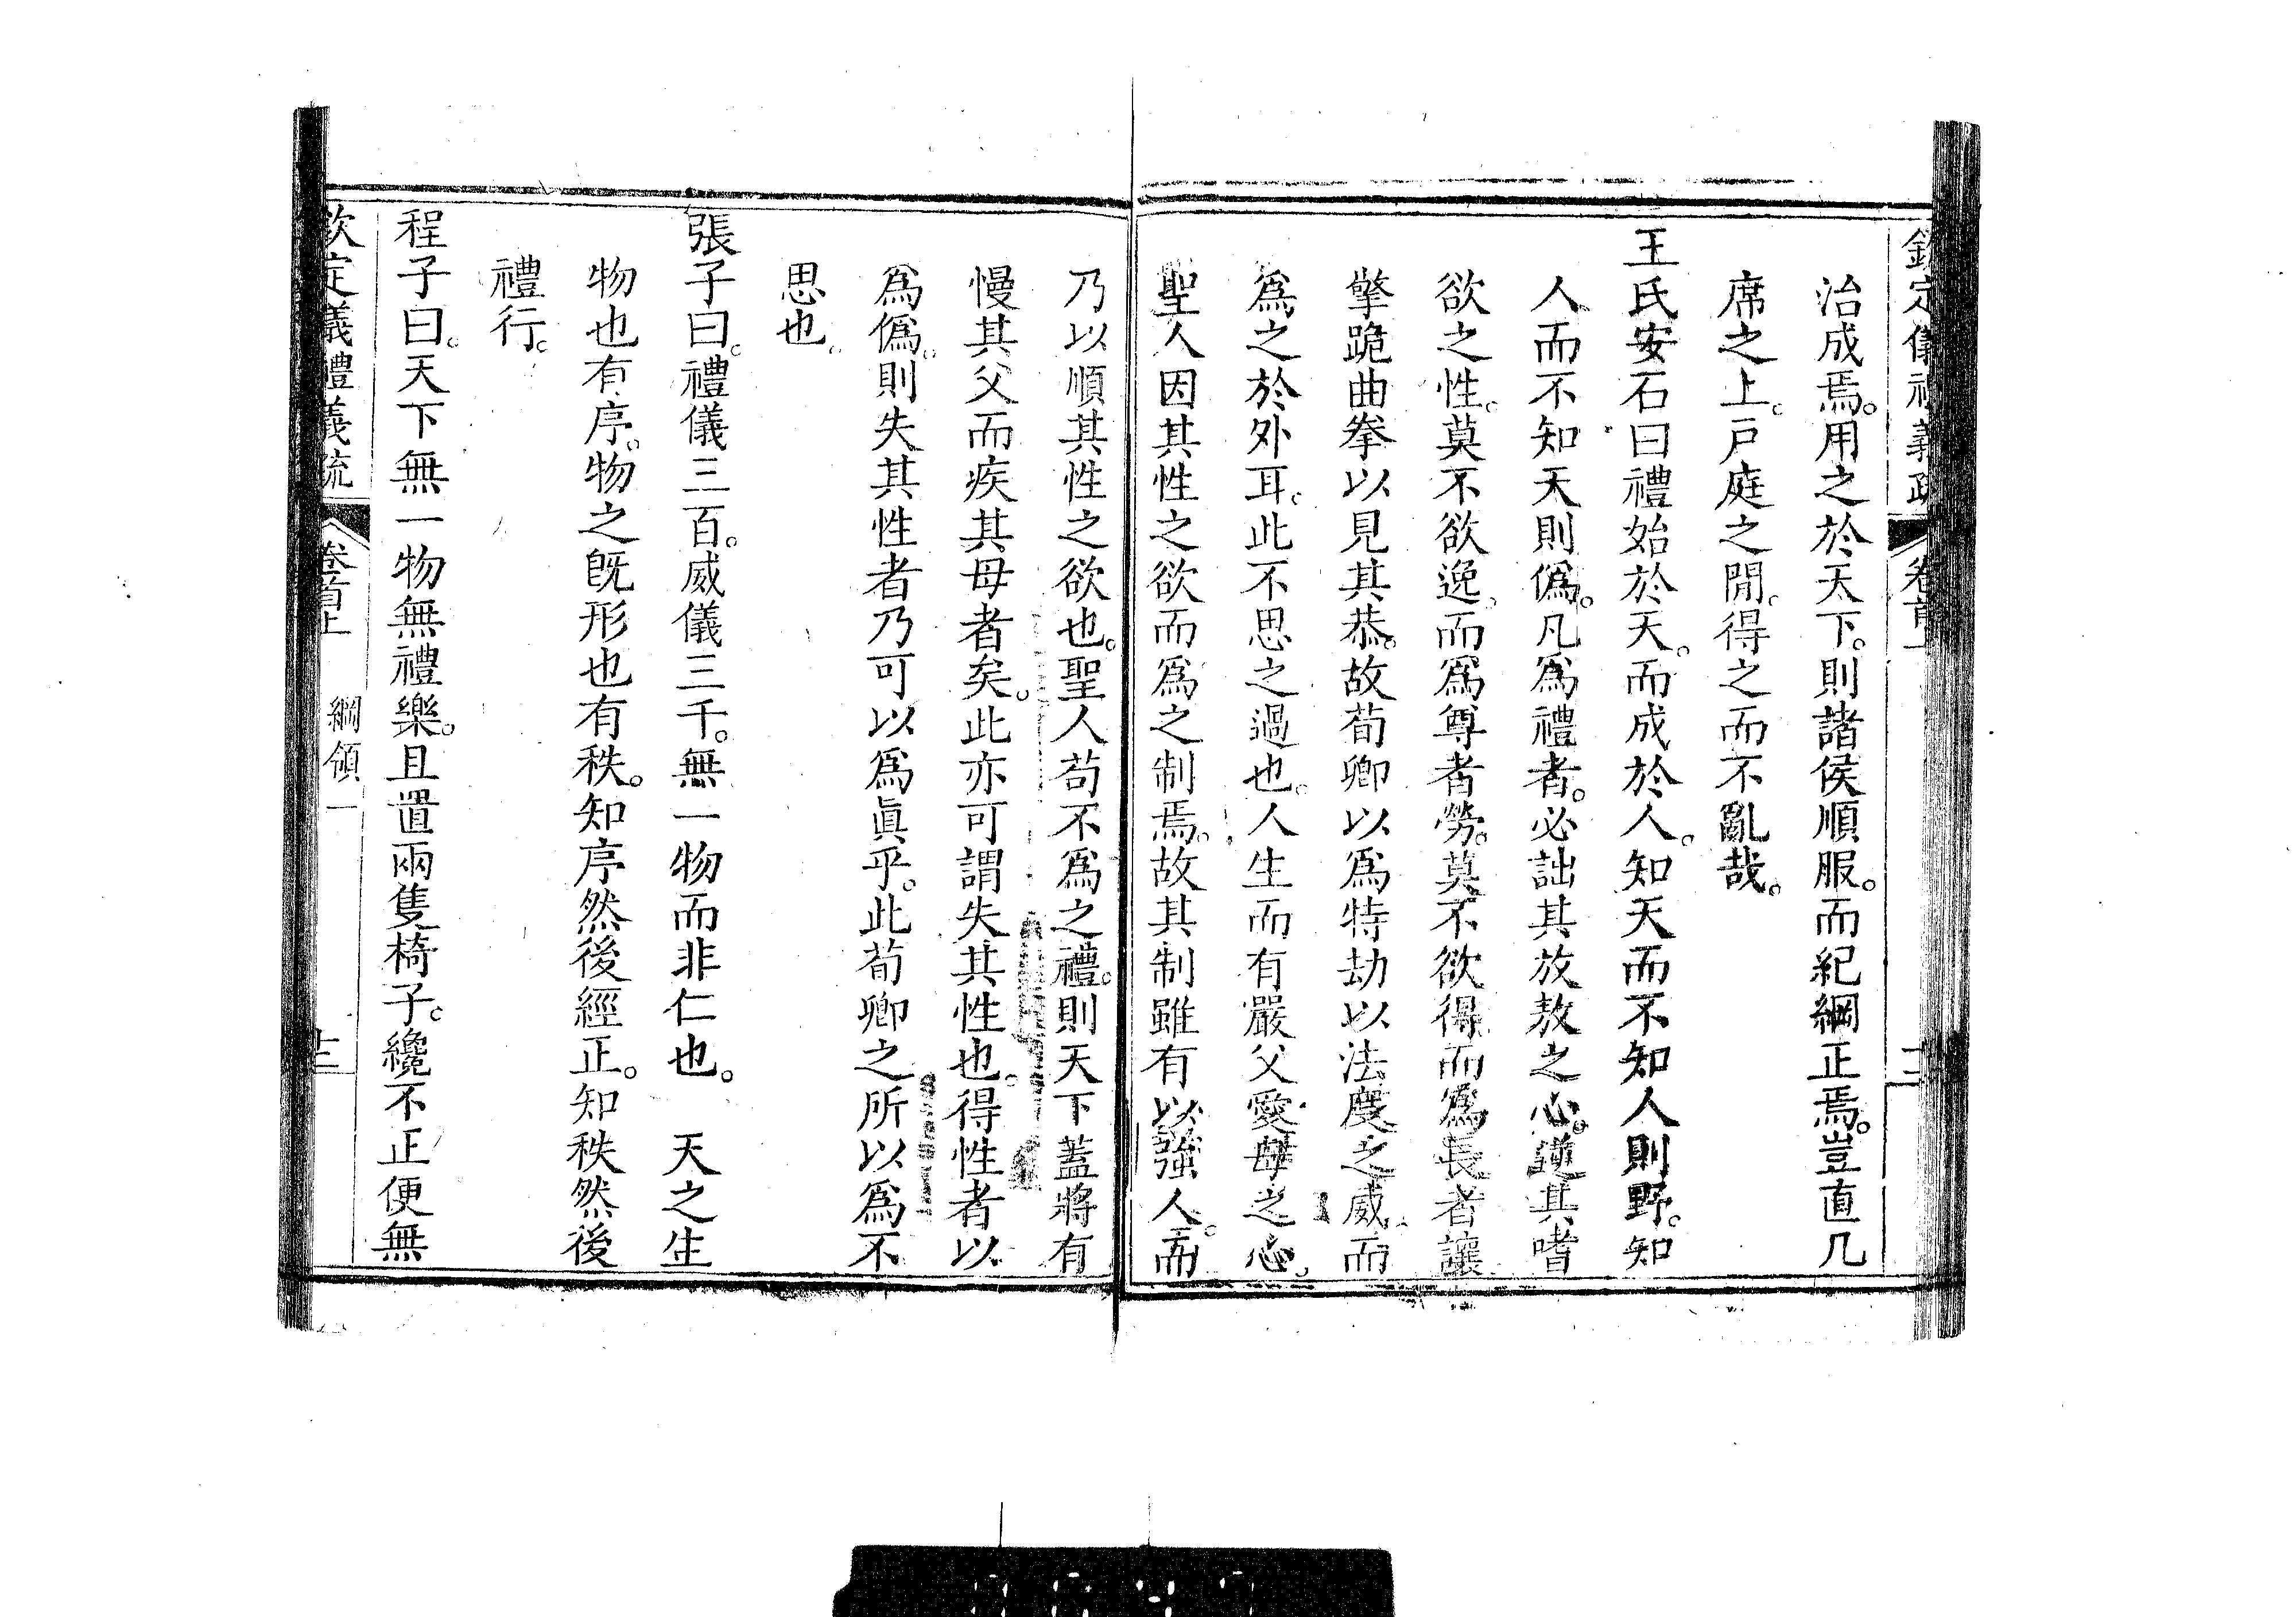 治成焉。用之於天下。則諸侯順服。而紀綱正焉。豈直几
席之上。戸庭之閒。得之而不亂哉。
王氏安石曰禮始於天。而成於人。知天而不知人則野。知
人而不知天則僞。凡爲禮者。必詘其放敖之心。逆其嗜
欲之性。莫不欲逸。而爲尊者勞。莫不欲得。而爲長者讓
擎跪曲拳以見其恭。故荀卿以爲特劫以法度之威。而
爲之於外耳。此不思之過也。人生而有嚴父愛母之心。
聖人因其性之欲而爲之制焉。故其制雖有以強人。而
乃以順其性之欲也。聖人苟不爲之禮。則天下蓋將有
慢其父而疾其母者矣。此亦可謂失其性也。得性者以
爲僞。則失其性者乃可以爲眞乎。此荀卿之所以爲不
思也。
張子曰。禮儀三百。威儀三千。無一物而非仁也。 天之生
物也有序。物之旣形也有秩。知序然後經正。知秩然後
禮行。
程子曰。天下無一物無禮樂。且置兩隻椅子。纔不正便無
欽定儀禮義疏 卷首上 綱領一